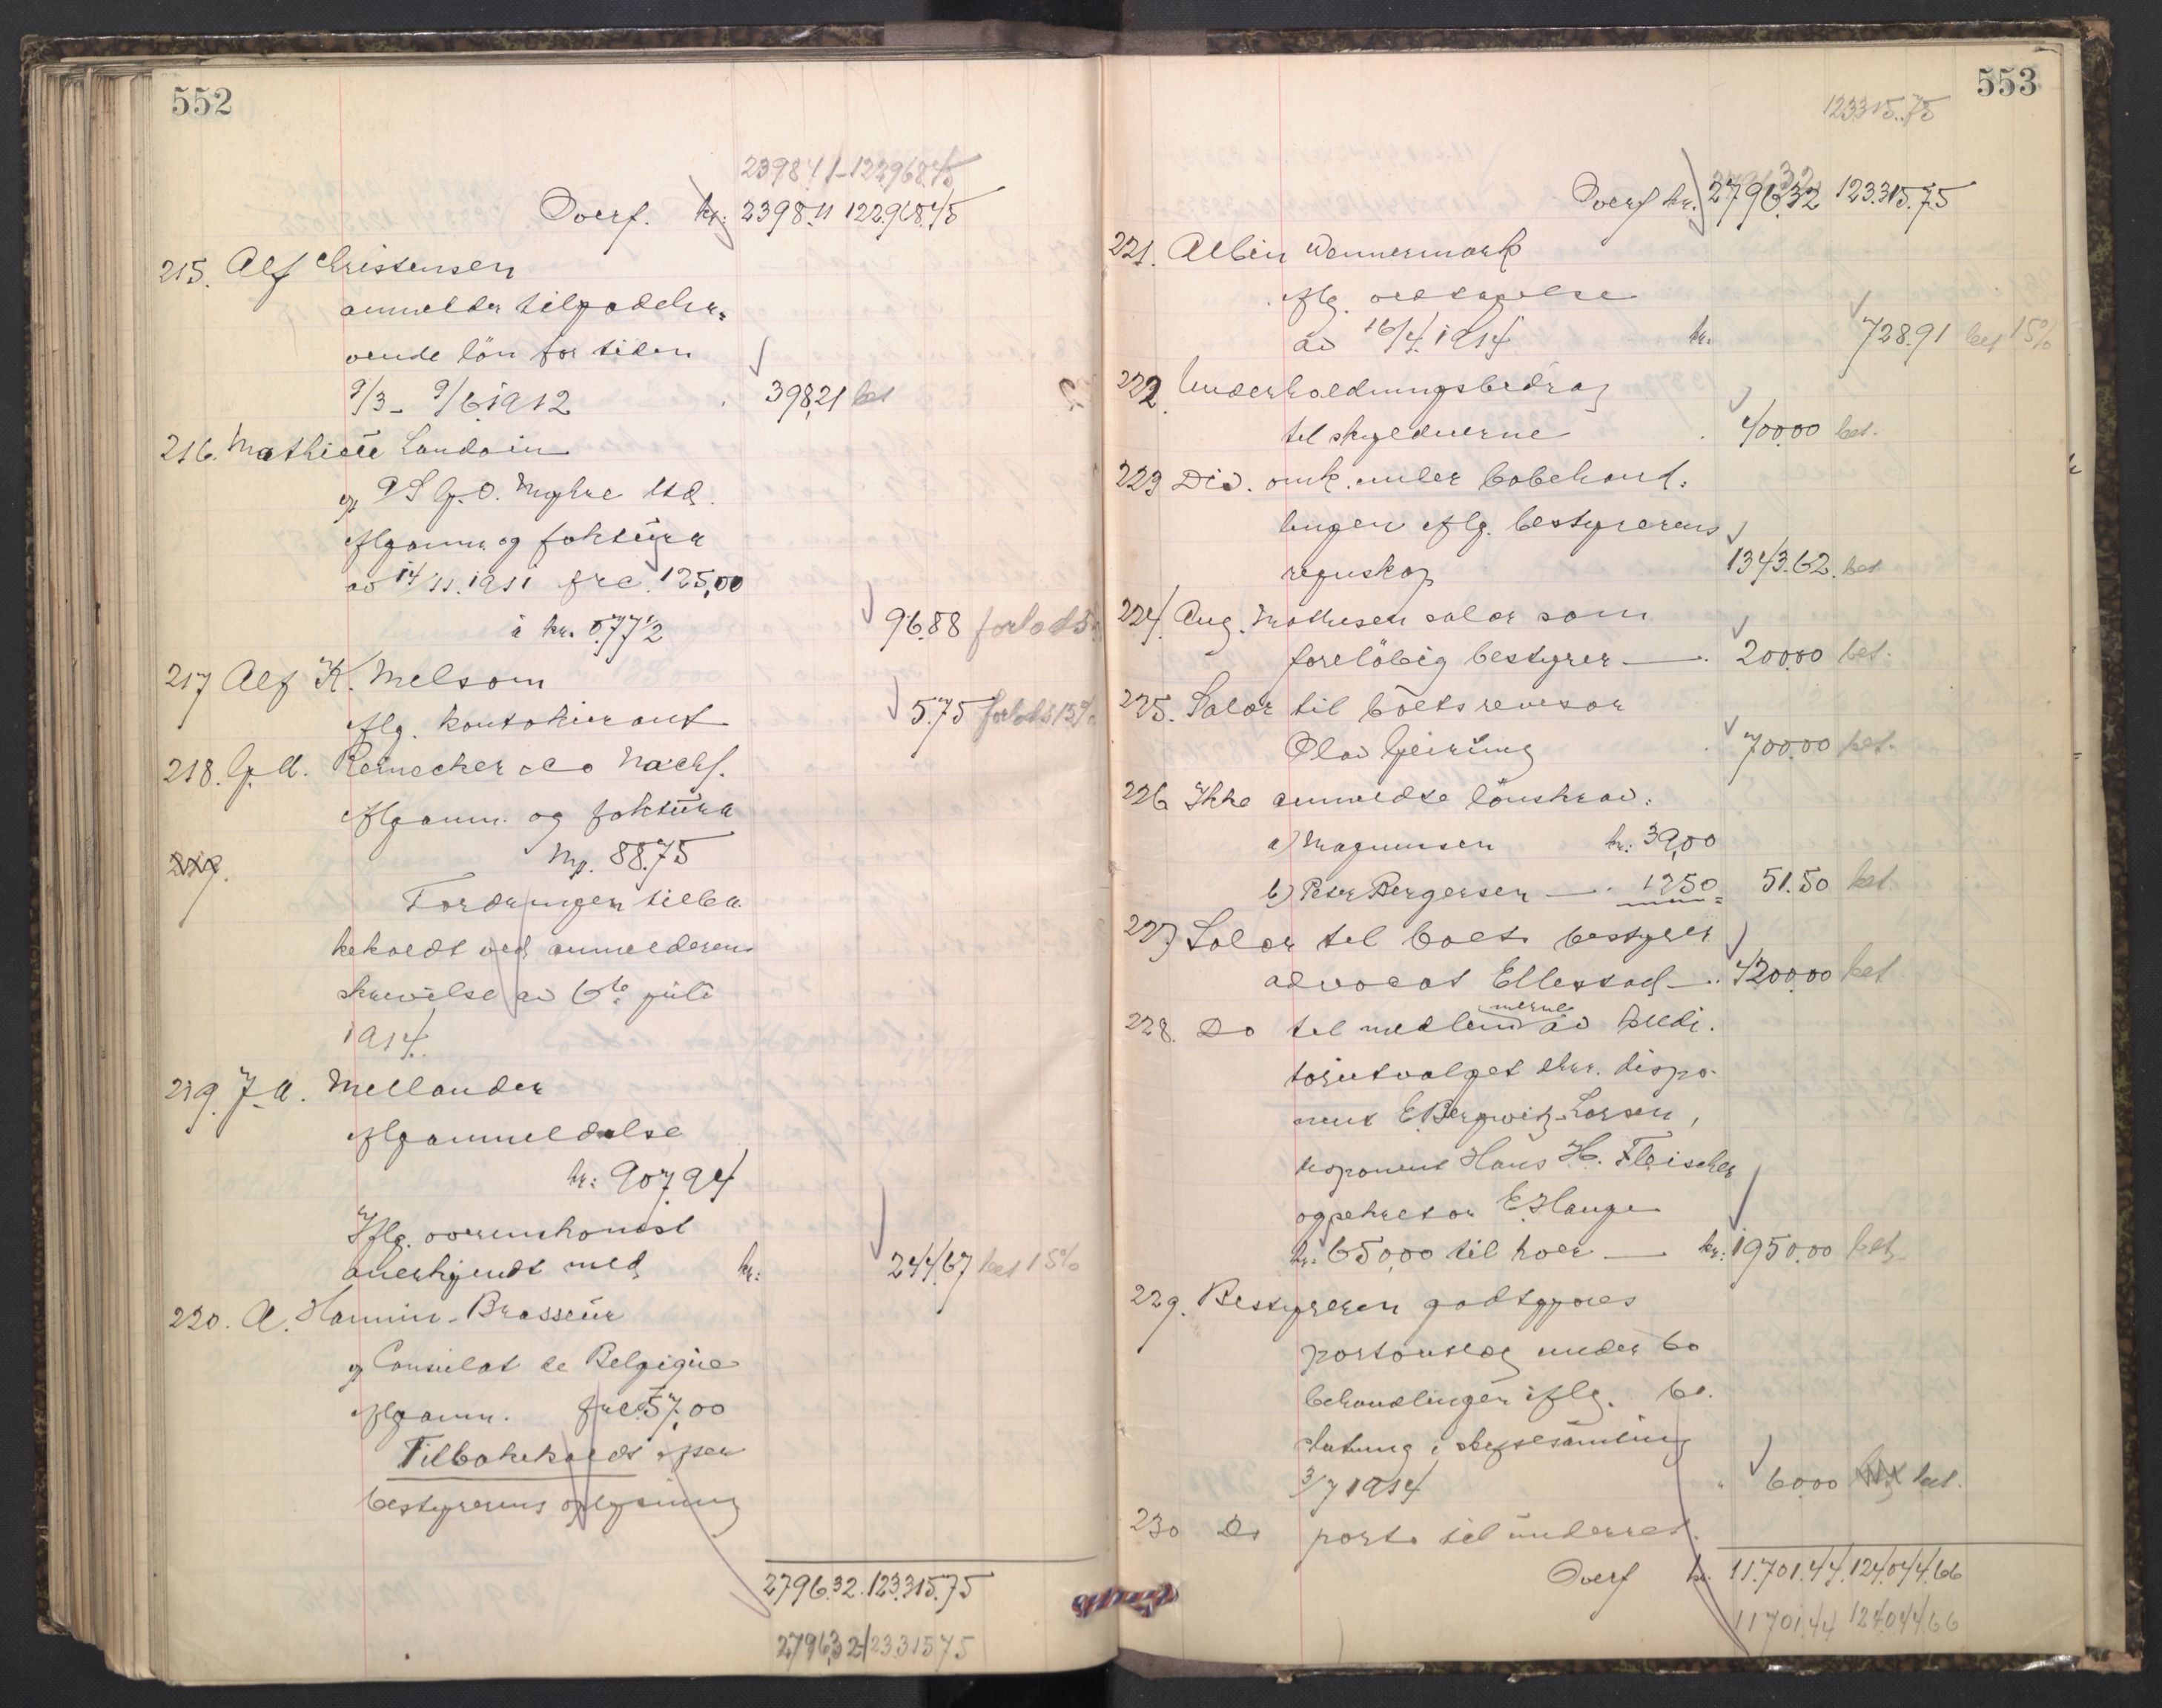 552
2398.11 - 122.968.45
Overf. kr: 2398.11 122.968.45
215. Alf Christensen
anmelder tilgodeha-
vende lön for tiden
9/3 - 9/6 1912 398,21 bet
216. Mathieu Landain
og A/S G. O. Myhre ltd.
iflg anm. og faktura
av 14/11. 1911 frc. 125,00
à kr. 0.77 1/2 96.88 forlods
217 Alf K. Melsom
iflg. kontokurant 5.75 forlods 15%
218. G. A. Reinecker & Co Nachf.
iflg anm. og faktura
Mp. 88.75
219.
Fordringen tilba-
keholdt ved anmelderens
skrivelse av 6te juli
1914.
219. J. A. Mellander
iflg anmeldelse
kr: 907,94
Iflg. overenskomst
anerkjendt med kr: 244.67 bet 15%
220. A. Hannin-Brasseur
og Consulat de Belgique
iflg anm. frc. 57.00
Tilbakeholdt iper
bestyrerens oplysning
2796.32. 123.315.75
2796,32 - 123315.75
553
123315.75
Overf kr. 2796.32 123.315.75
221. Albin Wennermark
iflg. vedtagelse
av 16/4. 1914 kr. 728.91 bet 15%
222. Underholdningsbidrag
til skyldnerne 400.00 bet.
223 Div. omk. under bobehand-
lingen iflg. bestyrerens
regnskap 1343.62. bet.
224. Aug. Mathesen salær som
foreløbig bestyrer — 200.00 bet.
225. Salær til boets revisor
Olav Geiring 700.00 bet.
226 Ikke anmeldte lönskrav:
a) Magnussen kr: 39,00
b) Peter Bergersen — 12.50 51.50 bet.
227 Salær til boets bestyrer
advocat Ellestad — 4200.00 bet
228. Do til medlemmerne av kredi-
torutvalget dhrr. dispo-
nent E. Bergwitz-Larsen,
disponent Hans H. Fleischer
og direktör E. Hauge
kr. 650,00 til hver — kr: 1950.00 bet.
229. Bestyreren godtgjøres
portoutlæg under bo
behandlingen iflg. be-
slutning i skiftesamling
3/7 1914 60.00 bet.
230 Do porto til underret.
Overf kr. 11.701.44. 124.044.66
11701.44 124.044.66